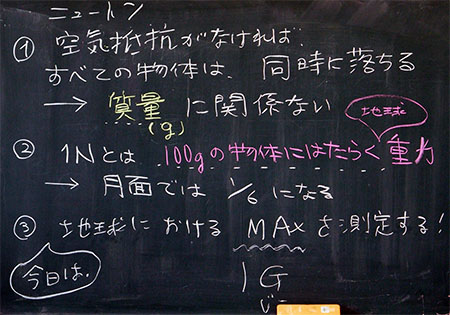 ニュートン
① 空気抵抗がなければ、
すべての物体は、同時に落ちる
→ 質量に関係ない
(g)
地球
② 1Nとは 100gの物体にはたらく重力
→ 月面では 1/6 になる
③ 地球における MAxを測定する!
今日は、
1G
じー